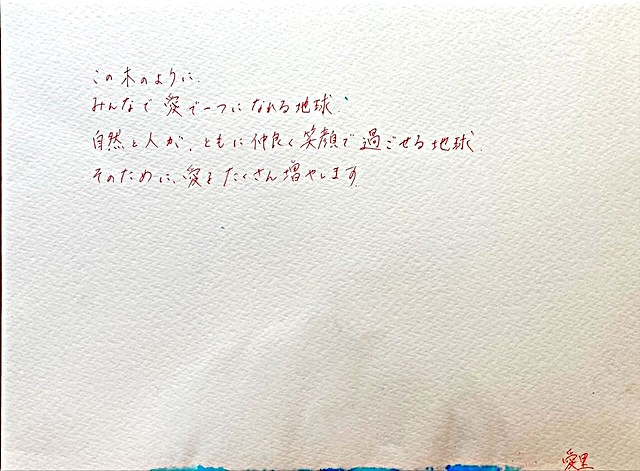 この木のように、
みんなで愛で一つになれる地球、
自然と人が、ともに仲良く笑顔で過ごせる地球、
そのために、愛をたくさん増やします。
愛里